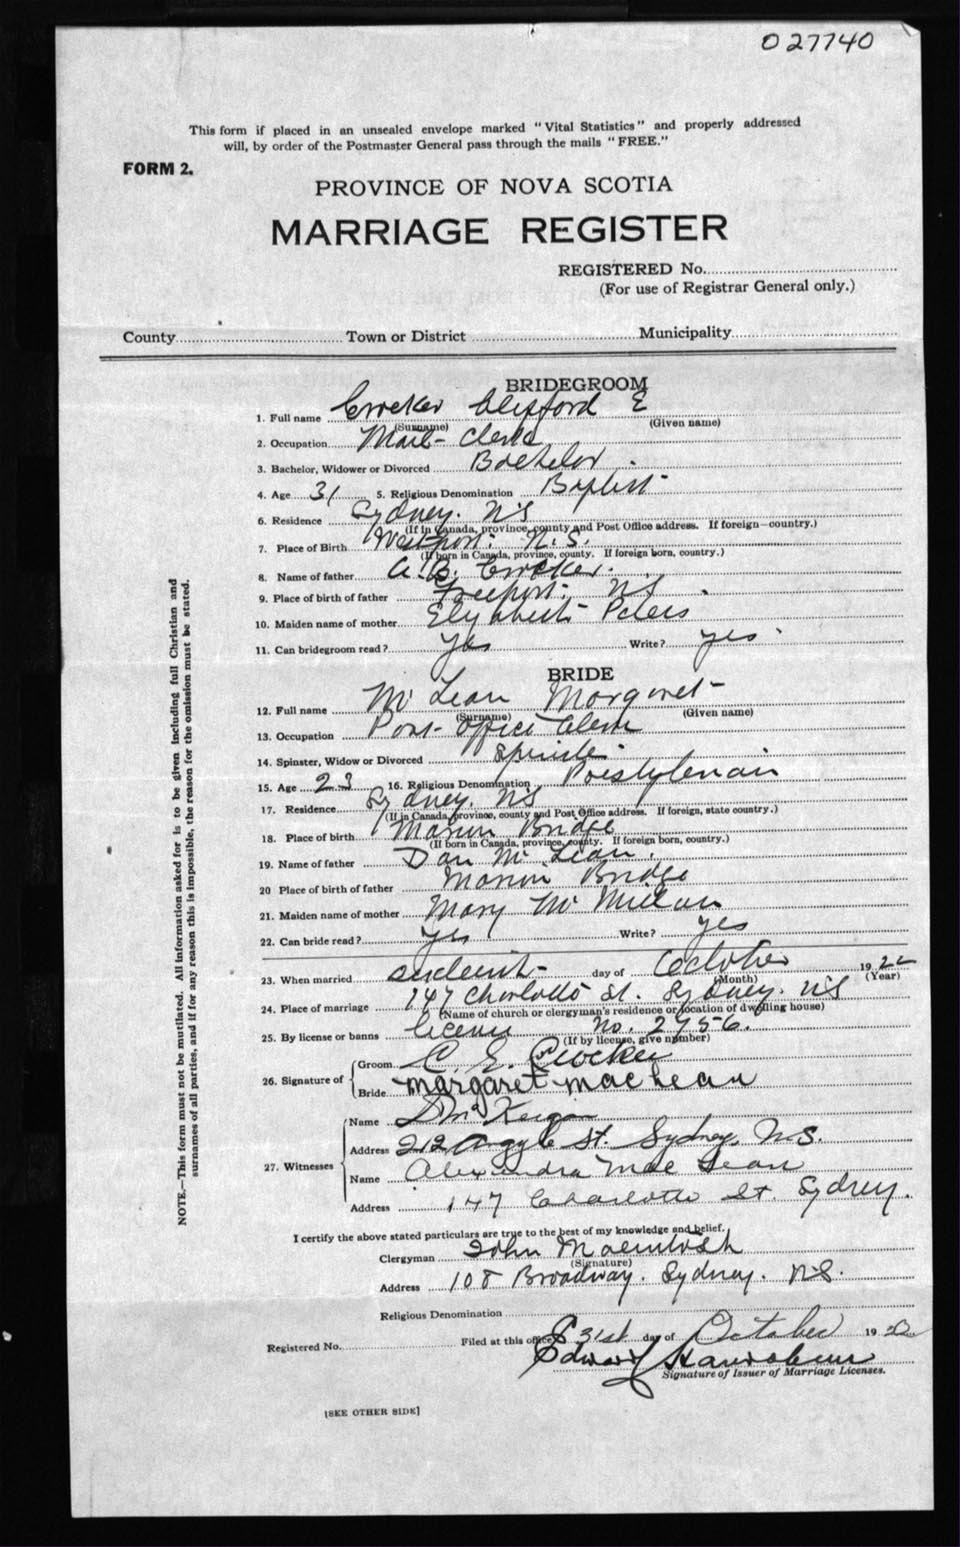 027740
This form if placed in an unsealed envelope marked "Vital Statistics" and properly addressed
will, by order of the Postmaster General pass through the mails "FREE."
FORM 2.
PROVINCE OF NOVA SCOTIA
MARRIAGE REGISTER
REGISTERED No.
(For use of Registrar General only.)
County Town or District Municipality
BRIDEGROOM
1. Full name Crocker Clifford E
(Surname) (Given name)
2. Occupation Mail-Clerk
3. Bachelor, Widower or Divorced Bachelor
4. Age 31 5. Religious Denomination Baptist
6. Residence Sydney. NS
(If in Canada, province, county and Post Office address. If foreign—country.)
7. Place of Birth Westport. N.S.
(If born in Canada, province, county. If foreign born, country.)
8. Name of father A.B. Crocker.
9. Place of birth of father Freeport. NS
10. Maiden name of mother Elizabeth Peters
11. Can bridegroom read? yes Write? yes
BRIDE
12. Full name McLean Margaret
(Surname) (Given name)
13. Occupation Post-office Clerk
14. Spinster, Widow or Divorced Spinster
15. Age 23 16. Religious Denomination Presbyterian
17. Residence Sydney. NS
(If in Canada, province, county and Post Office address. If foreign, state country.)
18. Place of birth Marion Bridge
(If born in Canada, province, county. If foreign born, country.)
19. Name of father Dan McLean.
20 Place of birth of father Marion Bridge
21. Maiden name of mother Mary McMillan
22. Can bride read? yes Write? yes
23. When married day of October 1922
(Month) (Year)
24. Place of marriage 147 Charlotte St. Sydney. NS
(Name of church or clergyman's residence or location of dwelling house)
25. By license or banns license No. 2956.
(If by license, give number)
26. Signature of Groom C. E. Crocker
Bride Margaret MacLean
27. Witnesses
Name
Address 212 Argyle St. Sydney, N.S.
Name Alexandra MacLean
Address 147 Charlotte St. Sydney.
I certify the above stated particulars are true to the best of my knowledge and belief.
Clergyman John Macintosh
(Signature)
Address 108 Broadway. Sydney. N.S.
Religious Denomination
Registered No. Filed at this office 31st day of October 19
Edward
Signature of Issuer of Marriage Licenses.
[SEE OTHER SIDE]
NOTE.—This form must not be mutilated. All information asked for is to be given including full Christian and
surnames of all parties, and if for any reason this is impossible, the reason for the omission must be stated.